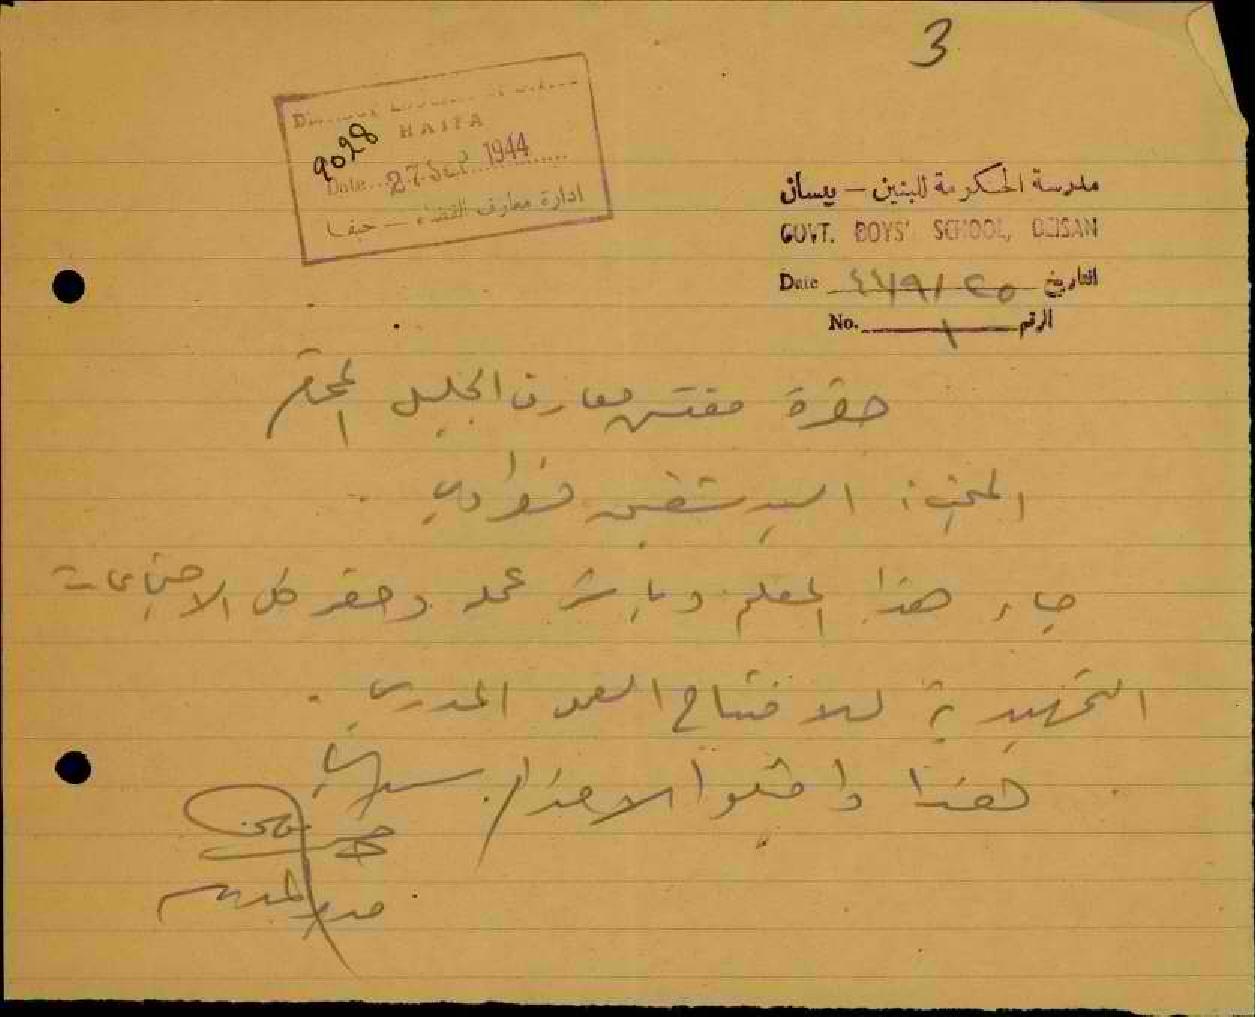 3
HAIFA
9028
Date 27 Sep 1944
ادارة معارف القضاء — حيفا
مدرسة الحكومة للبنين — بيسان
GOVT. BOYS' SCHOOL, BEISAN
Date ٤٤/٩/٢٥ التاريخ
No. ١ الرقم
حضرة مفتش معارف الجليل المحترم
السيد شفيق
جاء هذا المعلم وباشر عمله وحضر كل الاجتماعات
التمهيدية للافتتاح المدرسي.
هذا واقبلوا الاحترام.
مدير المدرسة